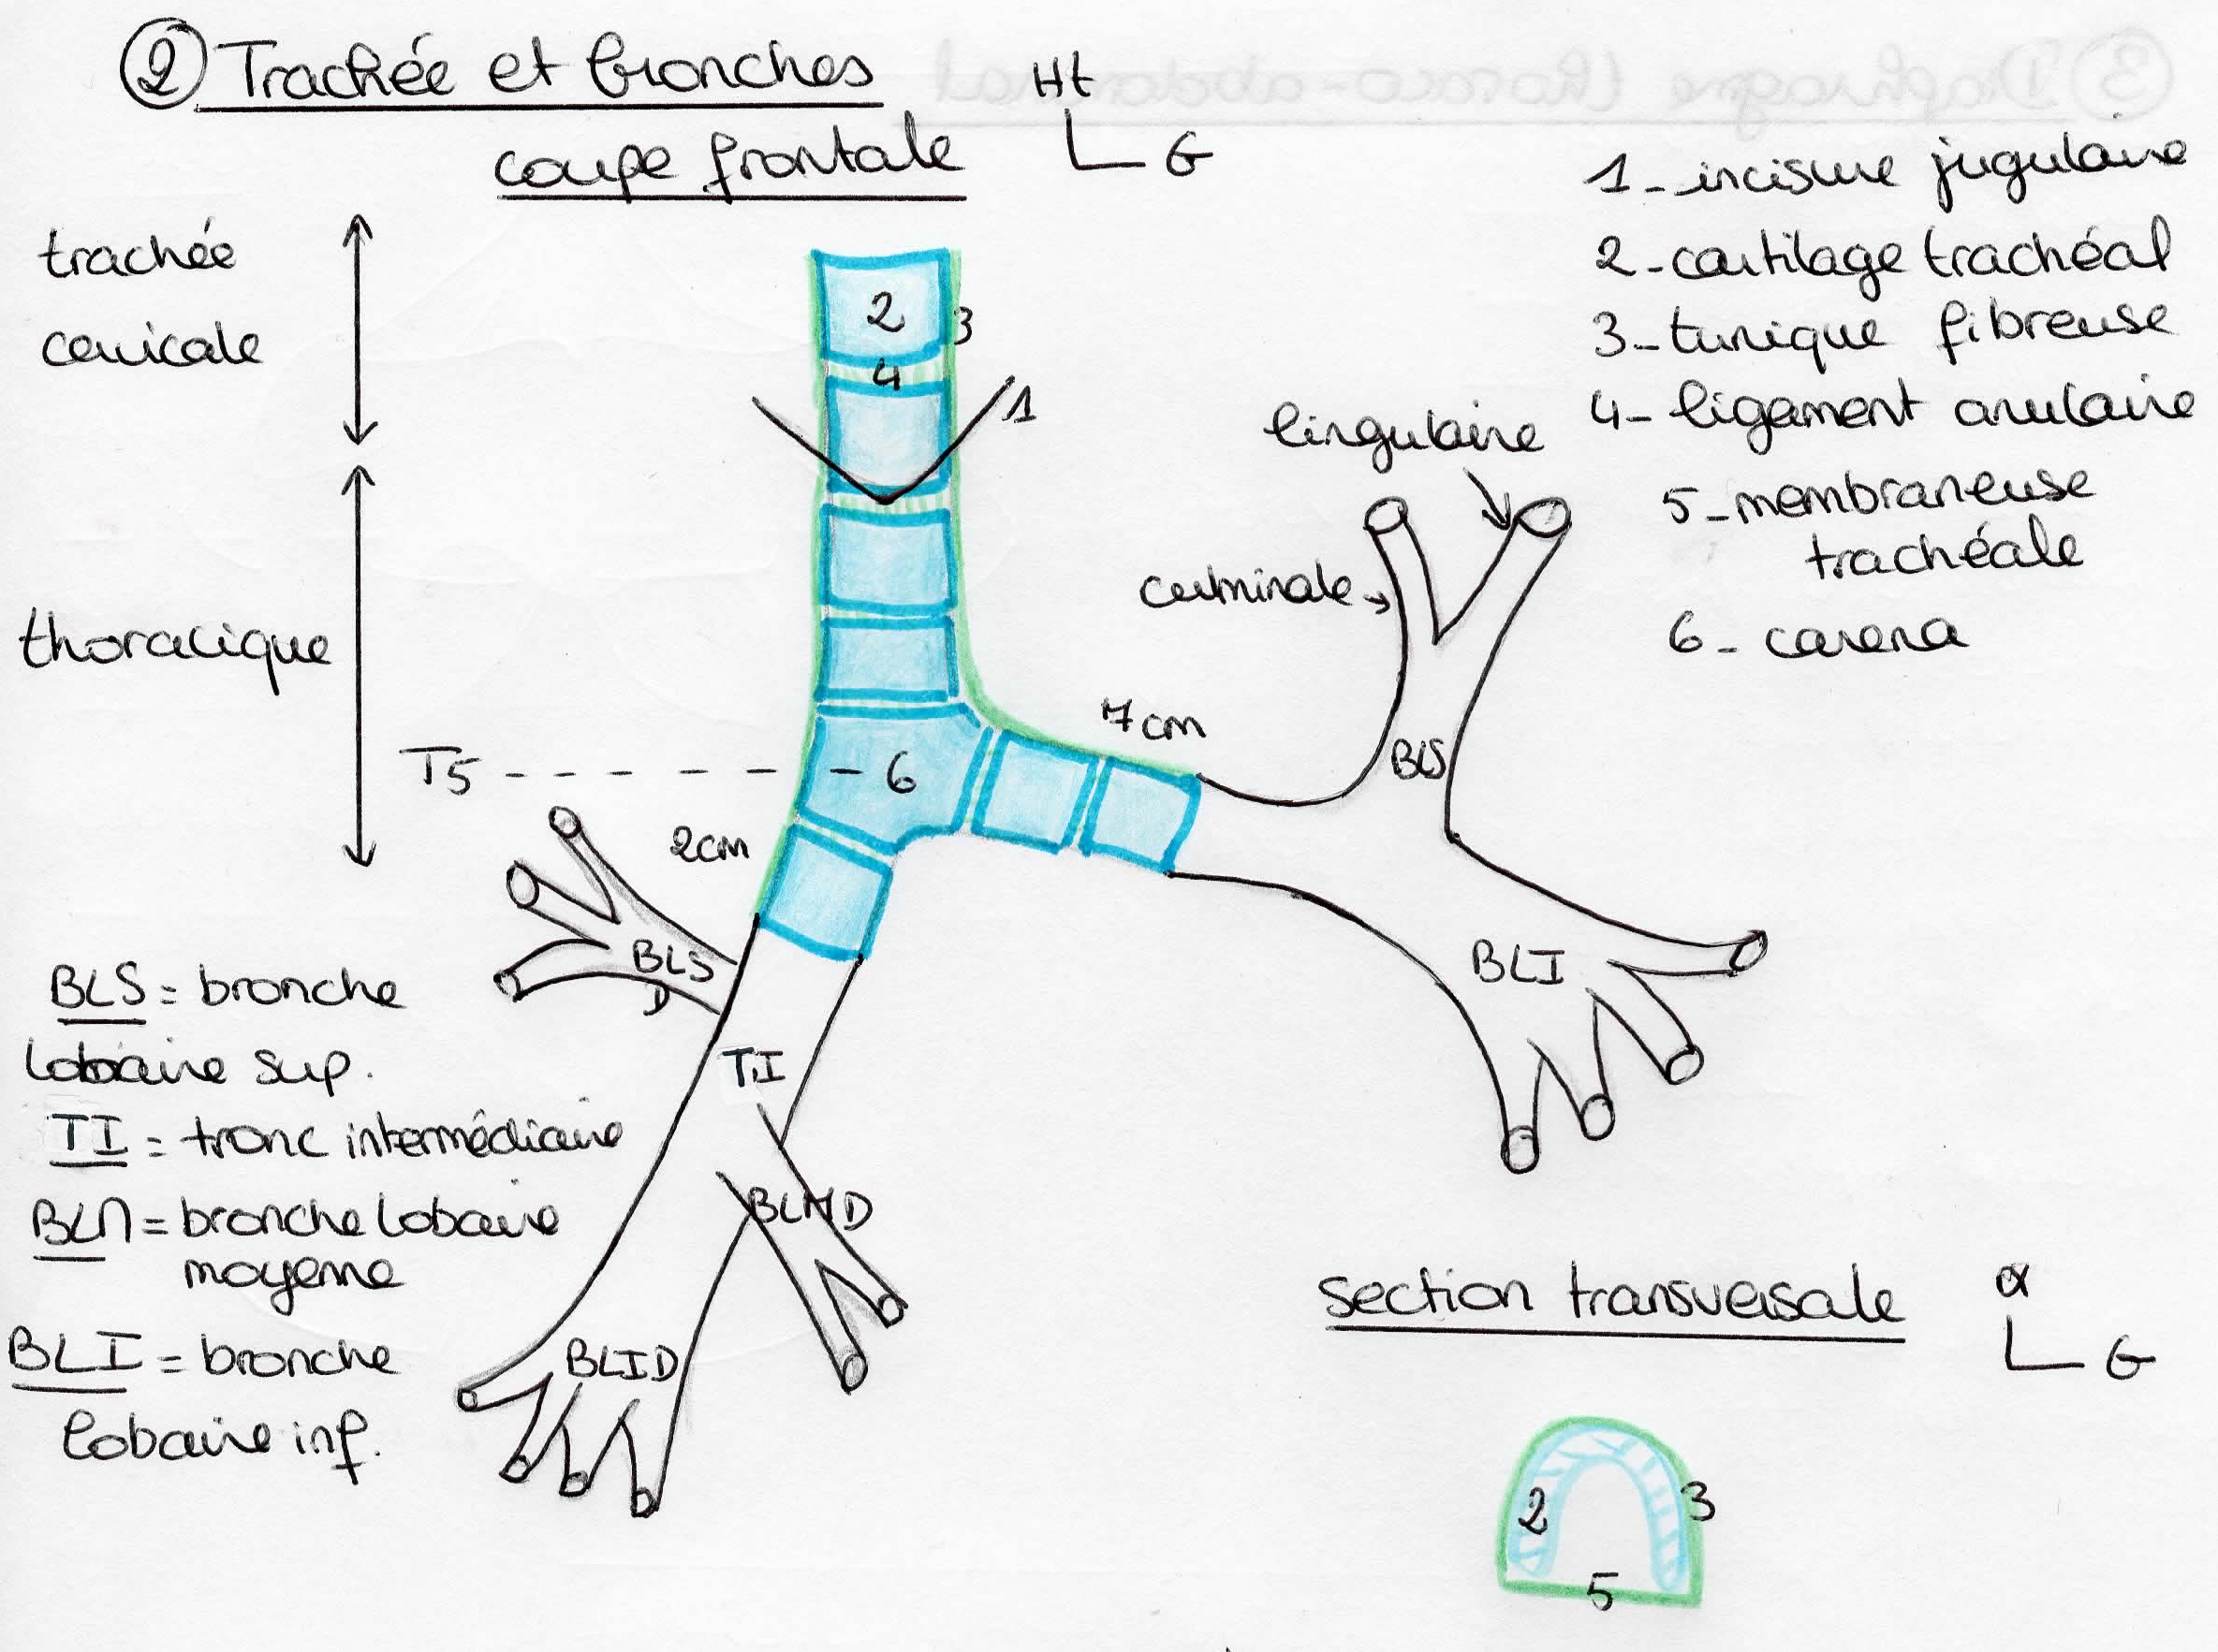 ② Trachée et bronches
coupe frontale
Ht
G
trachée
cervicale
thoracique
T5
2
3
4
1
6
7cm
2cm
lingulaire
culminale
BLS
BLI
BLS
D
TI
BLMD
BLID
1 - incisure jugulaire
2 - cartilage trachéal
3 - tunique fibreuse
4 - ligament anulaire
5 - membraneuse
trachéale
6 - carena
BLS = bronche
lobaire sup.
TI = tronc intermédiaire
BLM = bronche lobaire
moyenne
BLI = bronche
lobaire inf.
section transversale
G
2
3
5
③ Diaphragme thoraco-abdominal